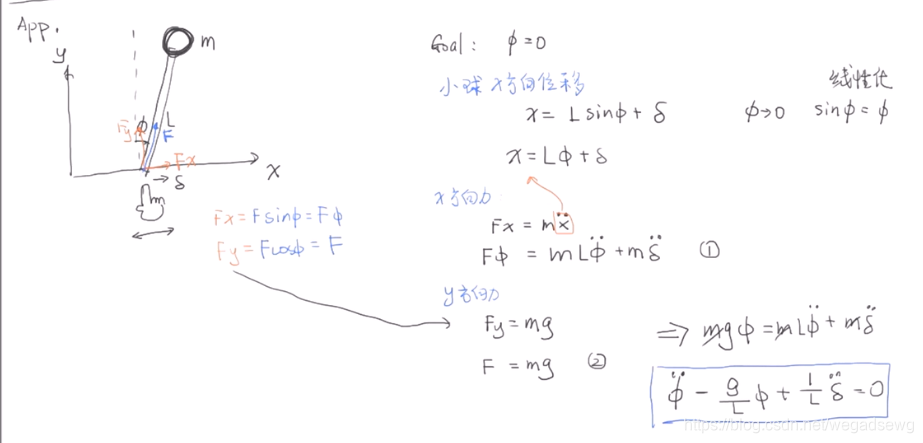 App.
y
m
φ
L
Fy
F
Fx
x
δ
Fx = Fsinφ = Fφ
Fy = Fcosφ = F
Goal: φ=0
小球 x方向位移
x = L sinφ + δ
x = Lφ + δ
线性化
φ→0 sinφ = φ
x方向力
Fx = mẍ
Fφ = mLφ̈ + mδ̈ ①
y方向力
Fy = mg
F = mg ②
⇒ mgφ = mLφ̈ + mδ̈
φ̈ - g/L φ + 1/L δ̈ = 0
https://blog.csdn.net/wegadsewg